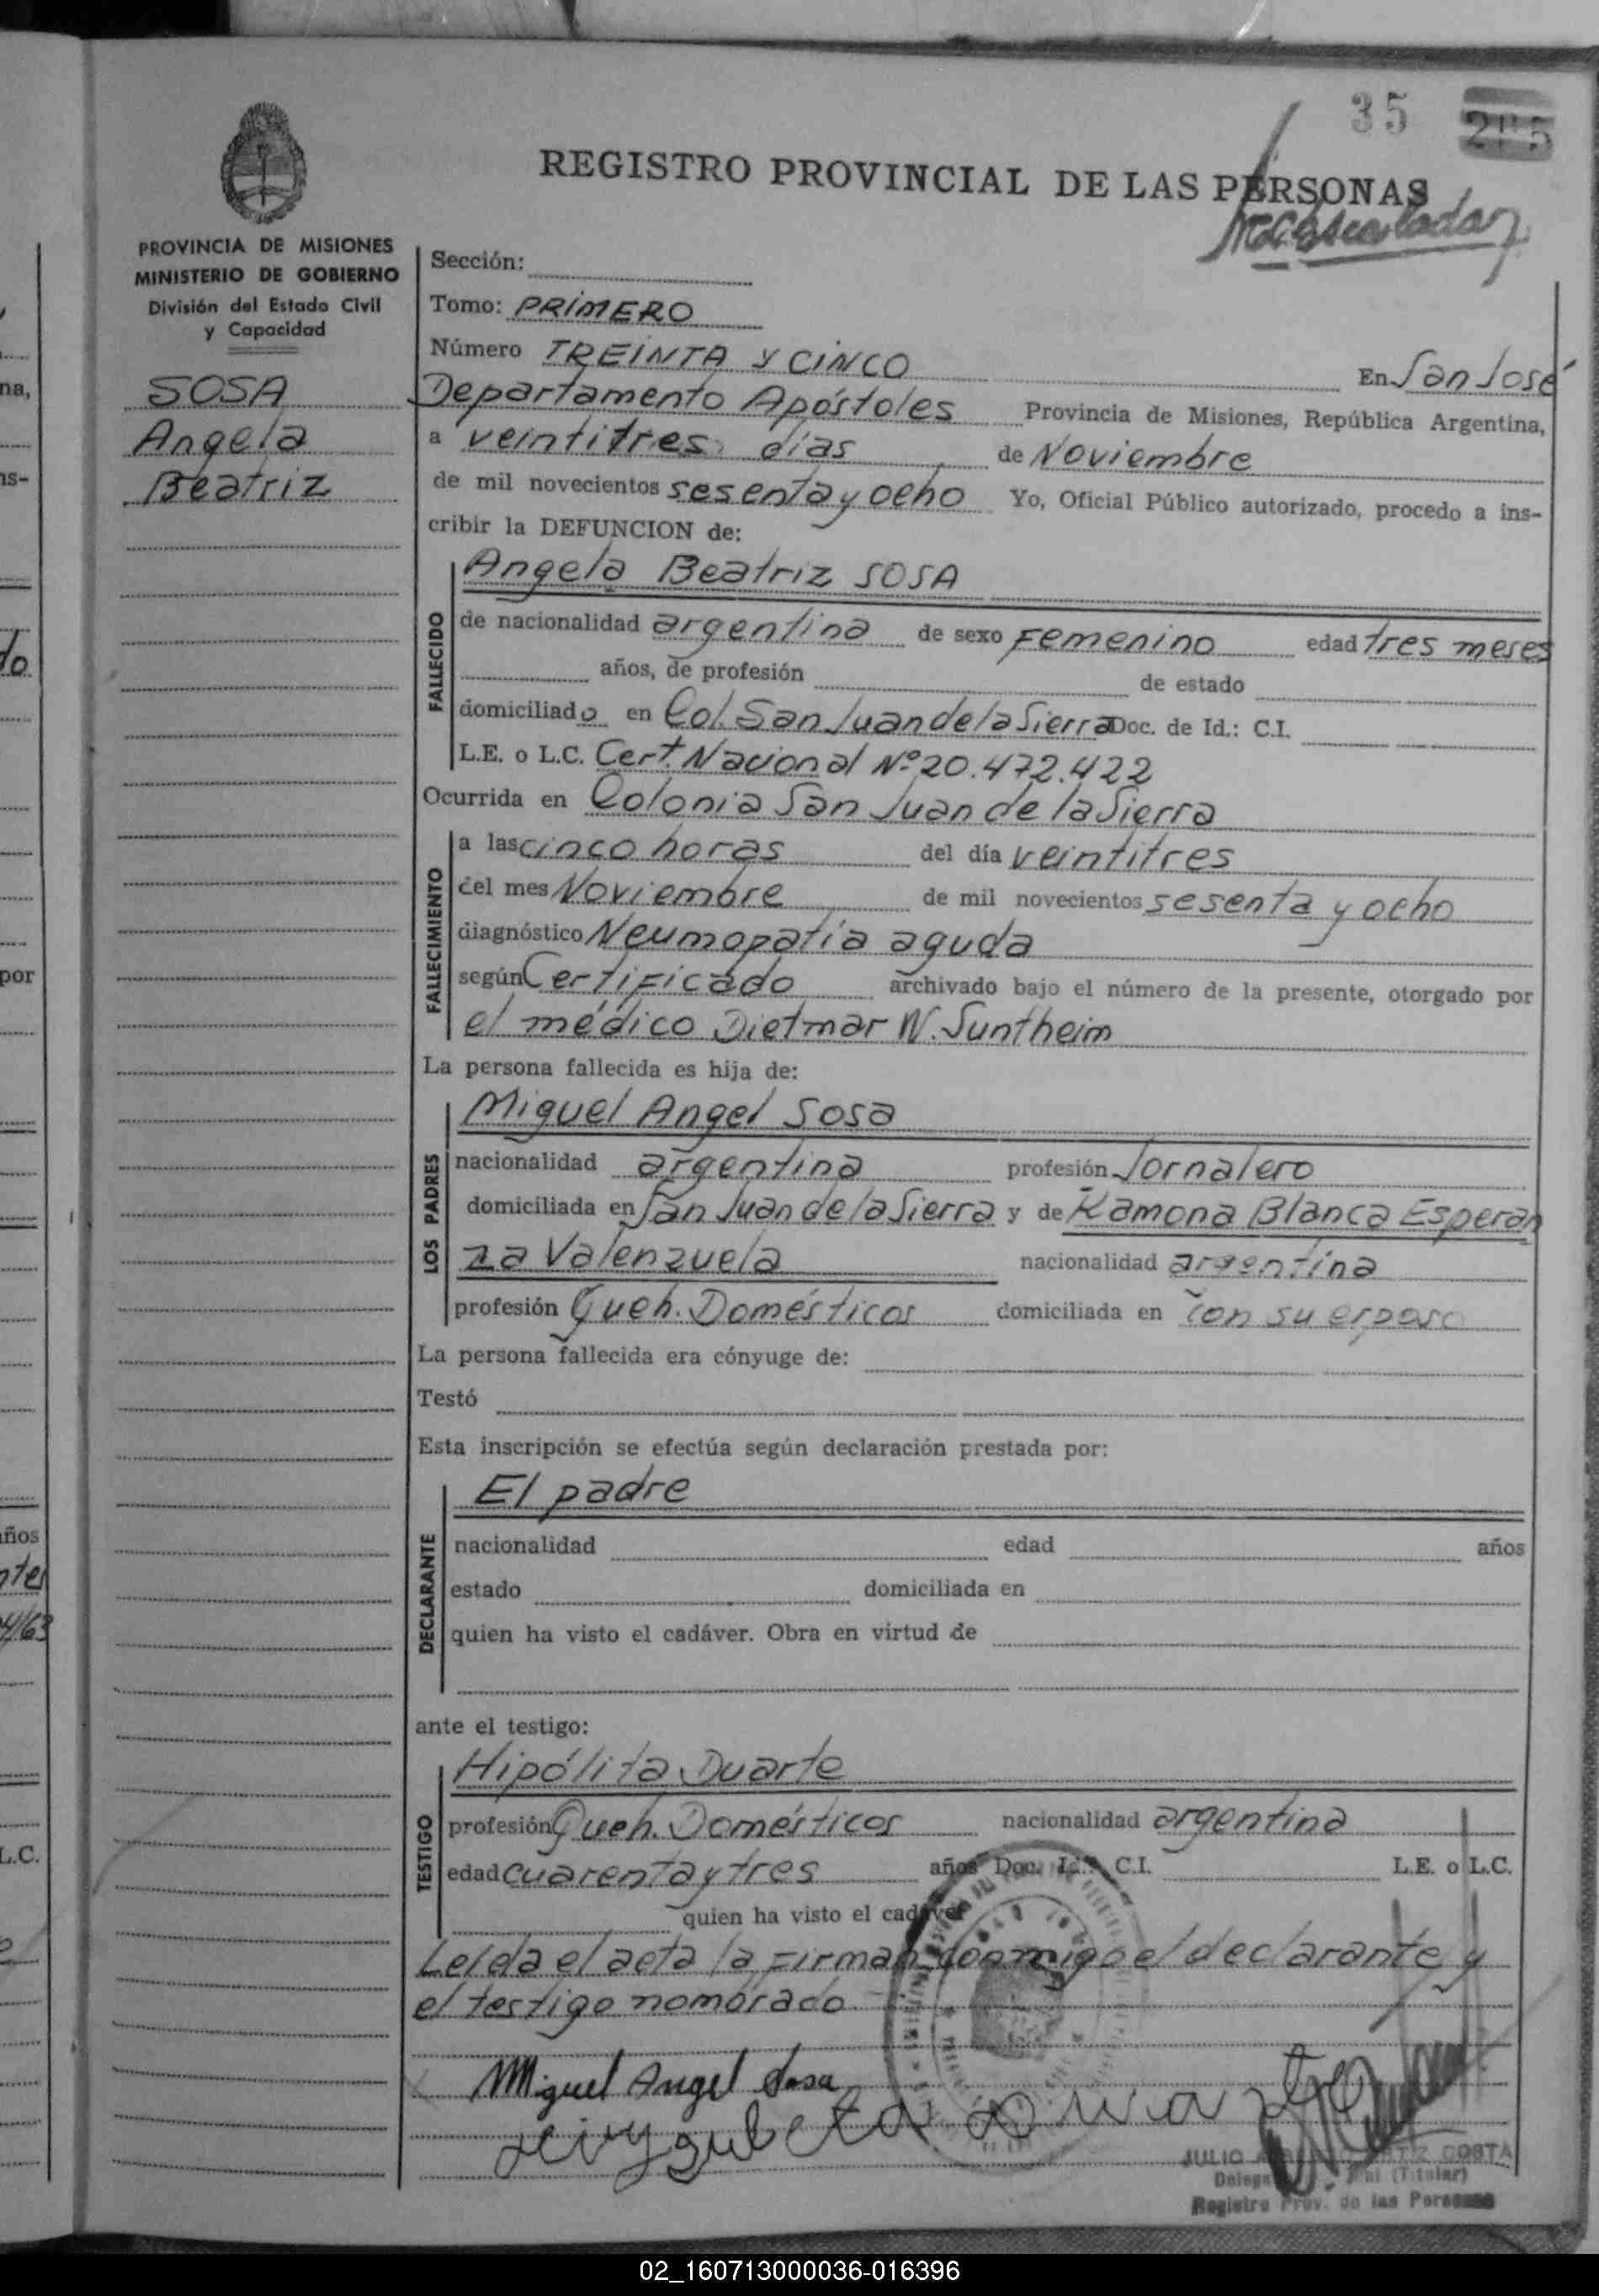 35
REGISTRO PROVINCIAL DE LAS PERSONAS
PROVINCIA DE MISIONES
MINISTERIO DE GOBIERNO
División del Estado Civil
y Capacidad
SOSA
Angela
Beatriz
Sección:
Tomo: PRIMERO
Número TREINTA y CINCO En San José
Departamento Apóstoles Provincia de Misiones, República Argentina,
a veintitres días de Noviembre
de mil novecientos sesenta y ocho Yo, Oficial Público autorizado, procedo a ins-
cribir la DEFUNCION de:
FALLECIDO
Angela Beatriz SOSA
de nacionalidad argentina de sexo Femenino edad tres meses
años, de profesión de estado
domiciliado en Col. San Juan de la Sierra Doc. de Id.: C.I.
L.E. o L.C. Cert. Nacional Nº 20.472.422
Ocurrida en Colonia San Juan de la Sierra
FALLECIMIENTO
a las cinco horas del día veintitres
del mes Noviembre de mil novecientos sesenta y ocho
diagnóstico Neumopatía aguda
según Certificado archivado bajo el número de la presente, otorgado por
el médico Dietmar W. Suntheim
La persona fallecida es hija de:
LOS PADRES
Miguel Angel Sosa
nacionalidad argentina profesión Jornalero
domiciliada en San Juan de la Sierra y de Ramona Blanca Esperan
za Valenzuela nacionalidad argentina
profesión Queh. Domésticos domiciliada en con su esposo
La persona fallecida era cónyuge de:
Testó
Esta inscripción se efectúa según declaración prestada por:
DECLARANTE
El padre
nacionalidad edad años
estado domiciliada en
quien ha visto el cadáver. Obra en virtud de
ante el testigo:
TESTIGO
Hipólita Duarte
profesión Queh. Domésticos nacionalidad argentina
edad cuarenta y tres años Doc. Id.: C.I. L.E. o L.C.
quien ha visto el cadáver
Leída el acta la firman conmigo el declarante y
el testigo nombrado
Miguel Angel Sosa
JULIO COSTA
(Titular)
Registro Prov. de las Personas
02_160713000036-016396